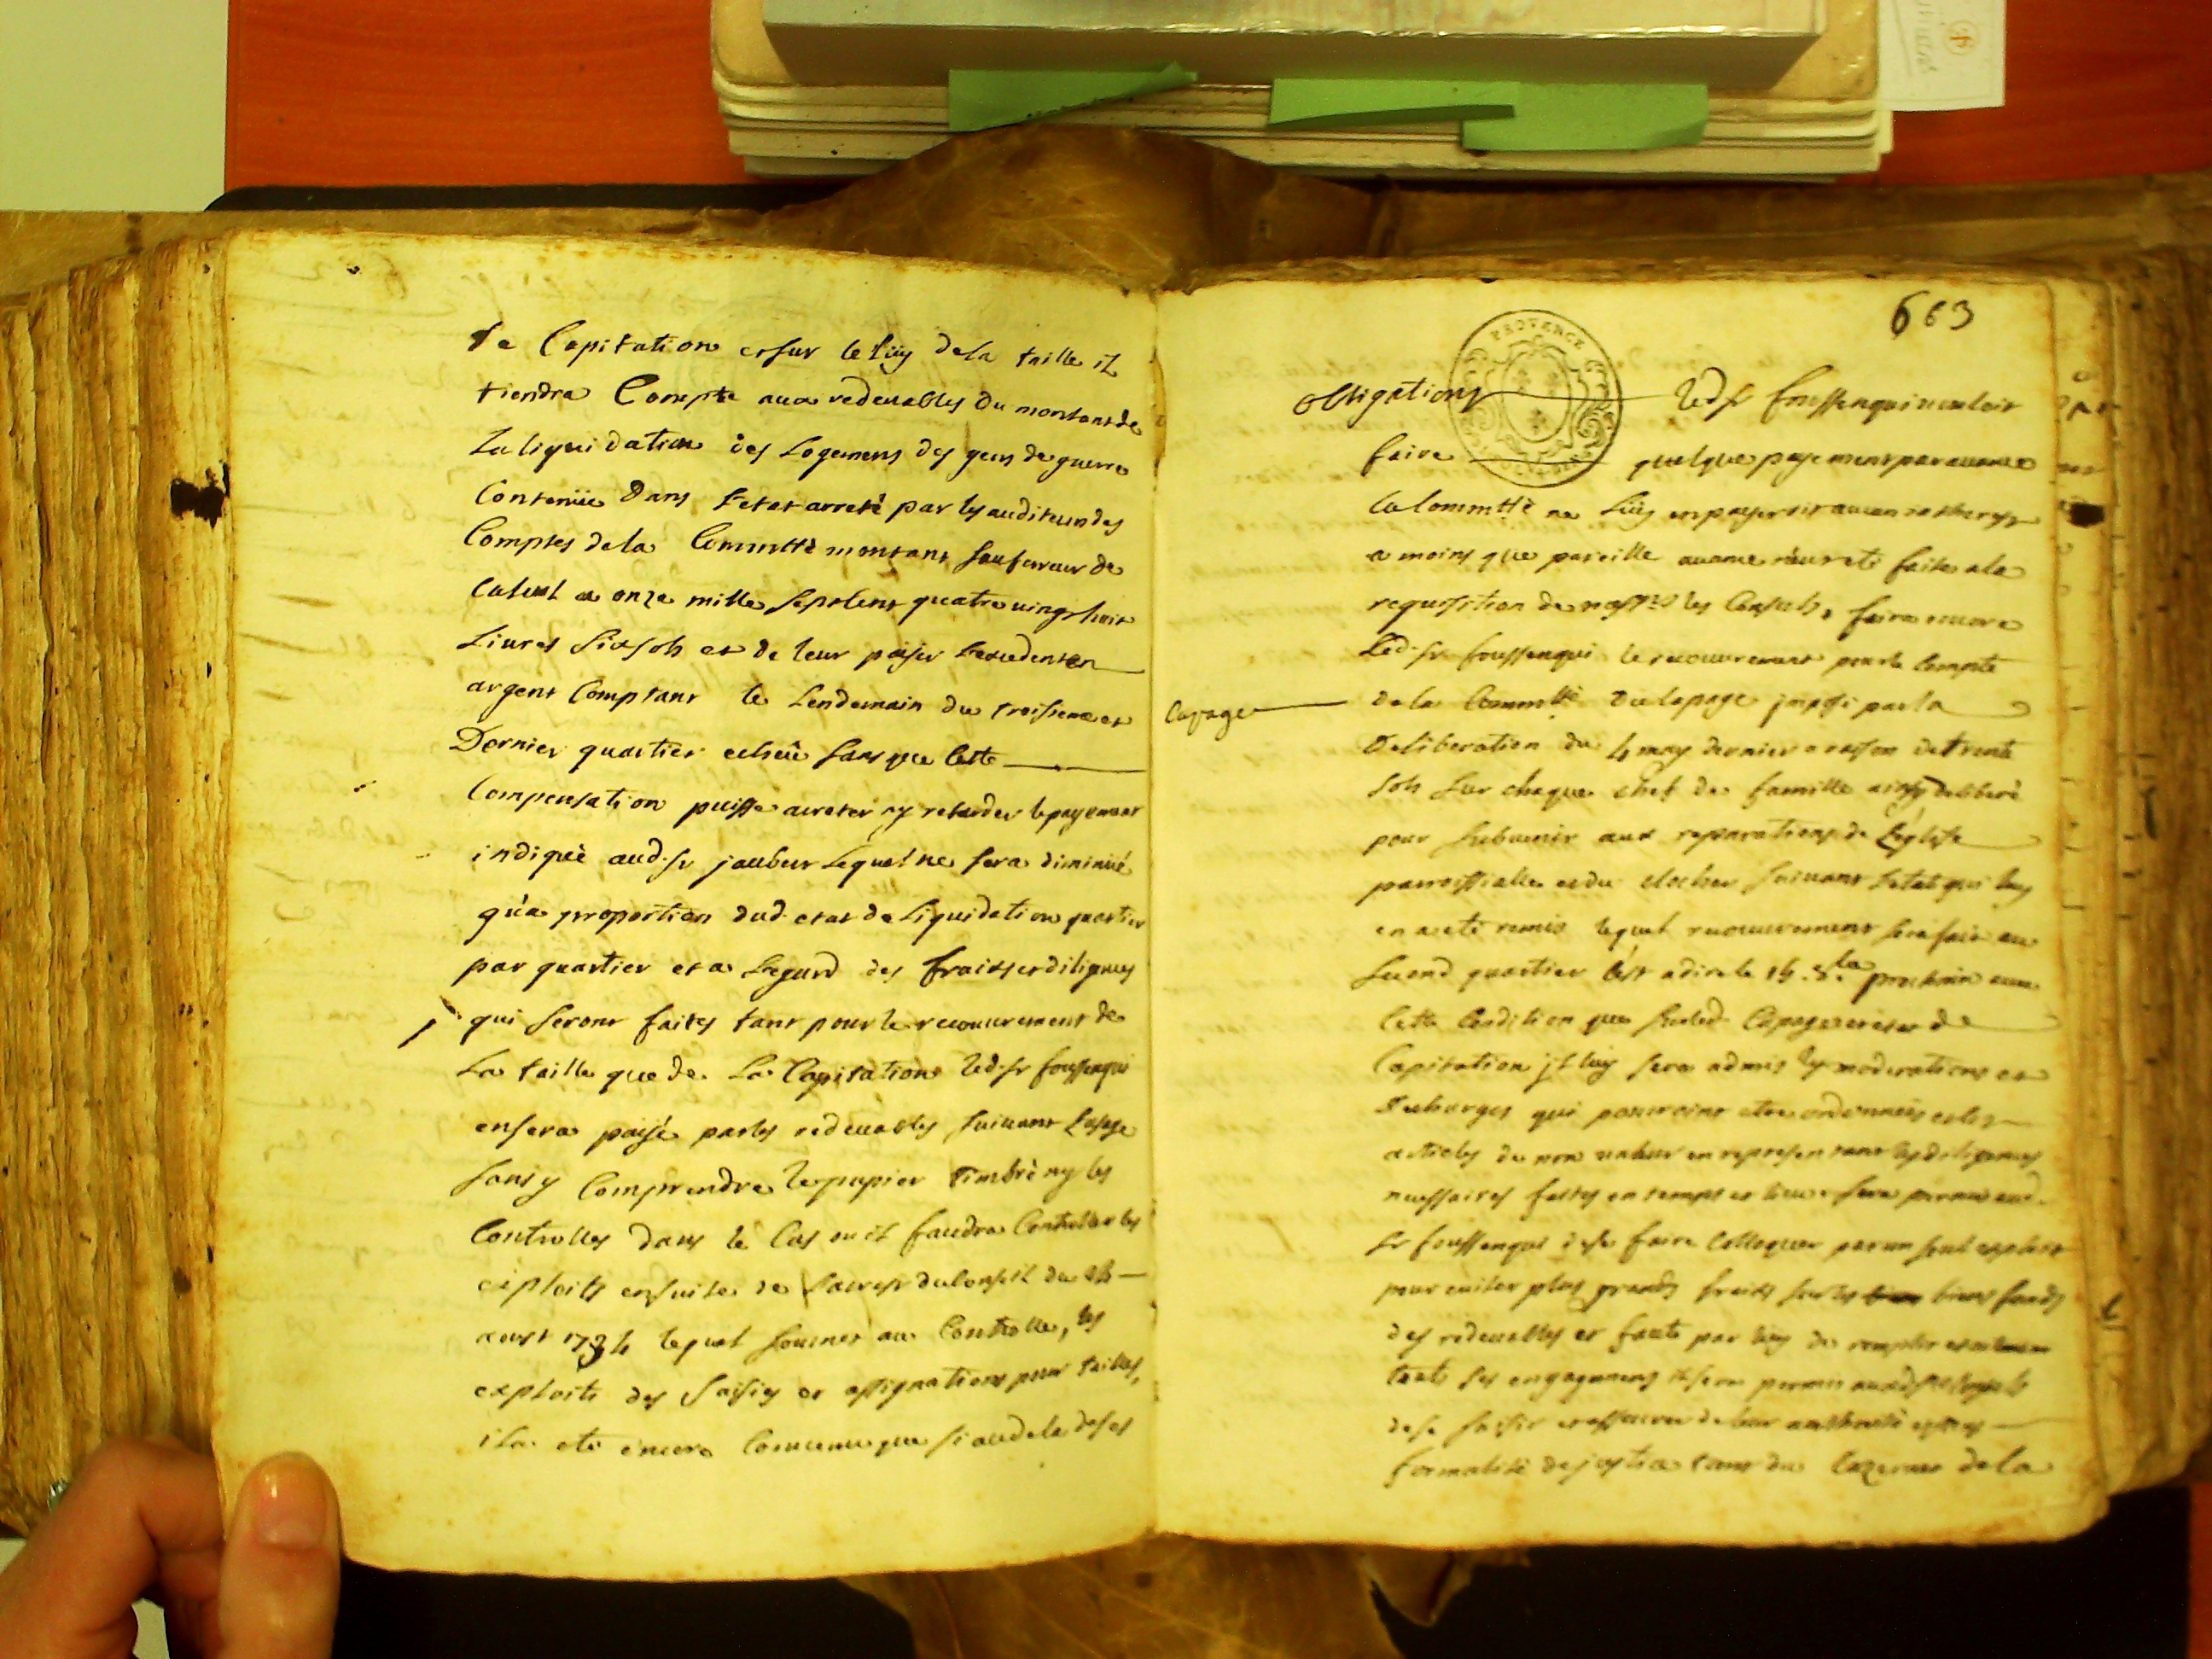 la Capitation et sur le luy de la taille il
tiendra Compte aux redeuables du montant de
La liquidation des Logemens des gens de guerre
Contenüe Dans l'etat arreté par les auditeurs des
Comptes de la Commtté montant sauf erreur de
Calcul a onze mille sept Cent quatre uingt huit
Liures six sols et de leur paÿer L'exedent en
argent Comptant le Lendemain du troisieme et
Dernier quartier echeû sans que Cette
Compensation puisse arreter ny retarder le payement
indiqué aud. sr jaubert Lequel ne sera diminué
qu'a proportion dud. etat de Liquidation quartier
par quartier et a L'egard des fraits et diligences
qui seront faites tant pour le recouurement de
La taille que de La Capitation led. sr foussenqui
en sera paÿé par les redeuables suiuant L'usage
sans y Comprendre le papier timbré ny les
Controlles dans le Cas ou il faudra Controller les
exploits ensuite de L'arrest du Conseil du 24
aoust 1734 lequel soumet au Controlle, les
exploits des saisies et assignations pour tailles,
il a eté encore Conuenu que si au dela de ses
663
PROVENCE
obligations led. sr foussenqui uouloit
faire quelque payement par auance
la Commtté ne luy en payeroit aucun
a moins que pareille auance n'eut eté faite a la
requisition de les Consuls, faira encore
Led. sr foussenqui le recouurement pour le Compte
Capage
de la Commtté du Capage imposé par la
Deliberation du 4 may dernier a raison de trente
sols sur chaque chef de famille ainsy deliberé
pour subuenir aux reparations de L'eglise
parroissialle et du clocher suiuant L'etat qui luy
en a eté remis lequel recouurement sera fait au
second quartier C'est a dire le 14. prochain auec
Cette Condition que sur led. Capage et de
Capitation il luy sera admis les moderations et
Decharges qui pourroient etre ordonnées et les
articles de non ualeur en representant les diligences
necessaires faites en temps et lieu sera permis aud.
Sr foussenqui de se faire Colloquer par un seul exploit
pour euiter plus grands fraits sur les biens fonds
des redeuables et faute par luy de remplir
toute ses engagemens il sera permis
de se saisir et de leur authorité
formalité de justice tant du Cazernet de la